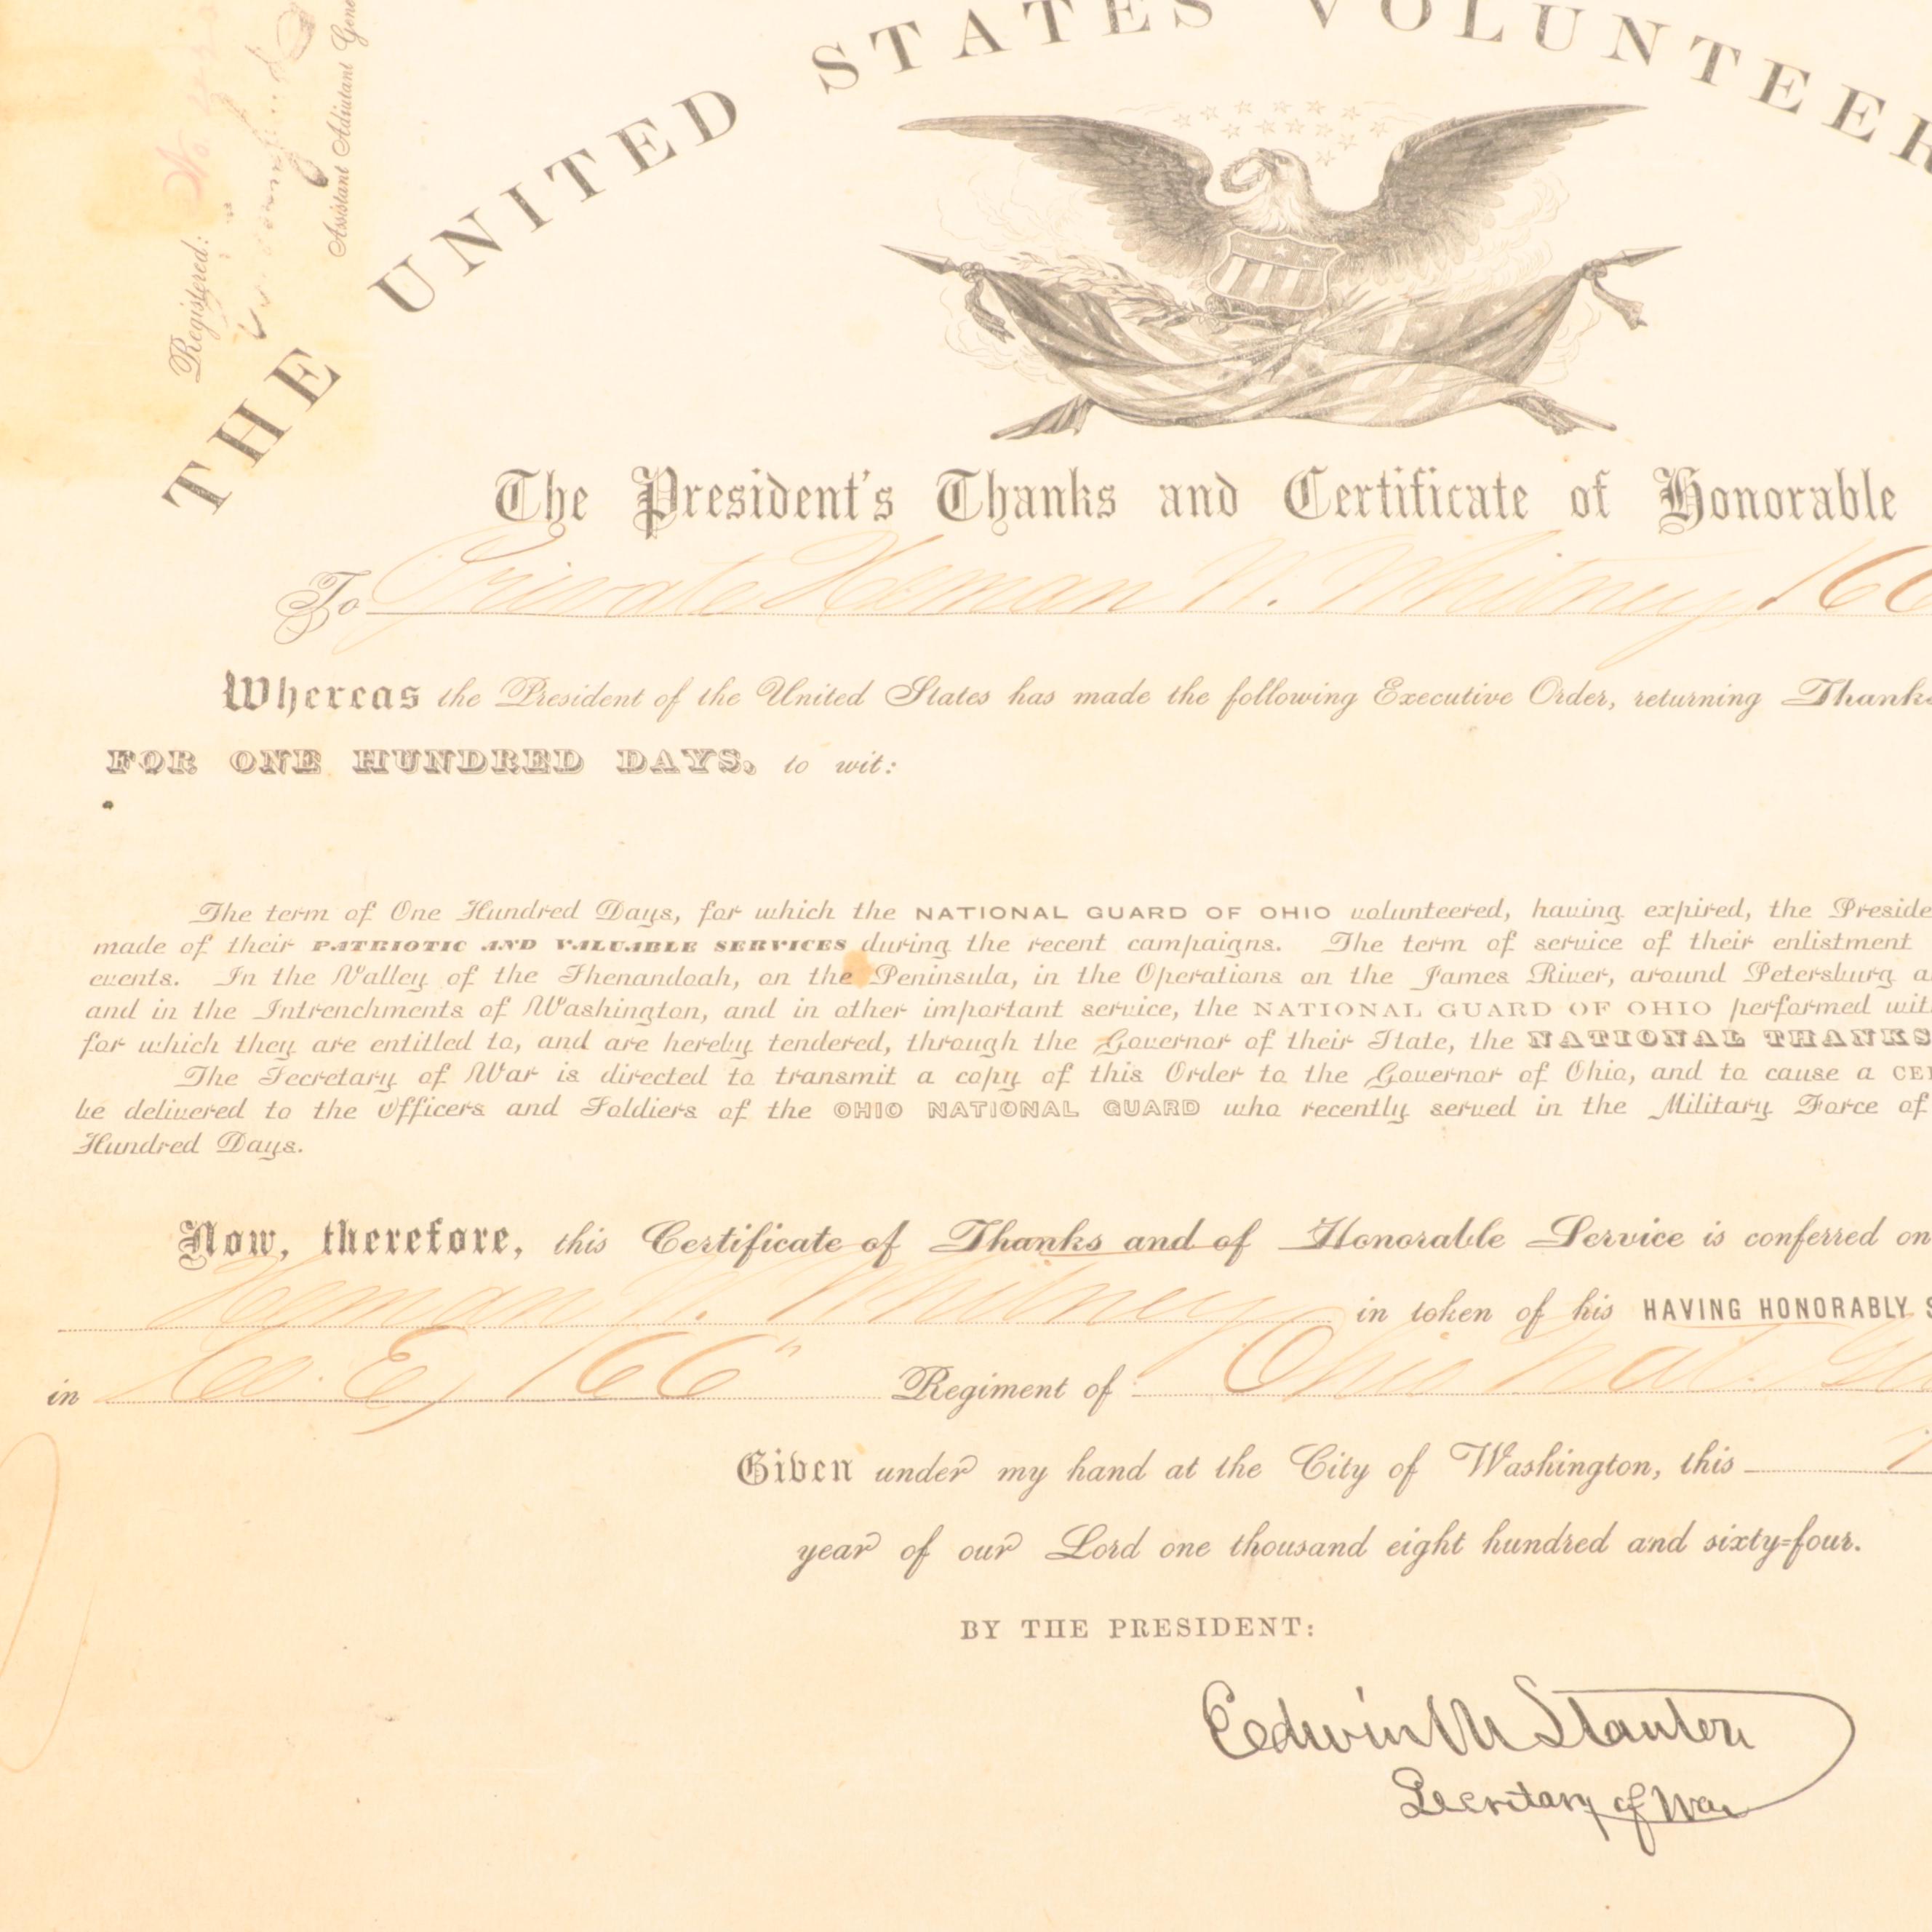 THE UNITED STATES VOLUNTEER
Registered: No.
Assistant Adjutant Gene
The President's Thanks and Certificate of Honorable
To Private Heman N. Whitney, 166
Whereas the President of the United States has made the following Executive Order, returning Thanks
FOR ONE HUNDRED DAYS, to wit:
The term of One Hundred Days, for which the NATIONAL GUARD OF OHIO volunteered, having expired, the Preside
made of their PATRIOTIC AND VALUABLE SERVICES during the recent campaigns. The term of service of their enlistment
events. In the Valley of the Shenandoah, on the Peninsula, in the Operations on the James River, around Petersburg a
and in the Intrenchments of Washington, and in other important service, the NATIONAL GUARD OF OHIO performed wit
for which they are entitled to, and are hereby tendered, through the Governor of their State, the NATIONAL THANKS
The Secretary of War is directed to transmit a copy of this Order to the Governor of Ohio, and to cause a CE
be delivered to the Officers and Soldiers of the OHIO NATIONAL GUARD who recently served in the Military Force of
Hundred Days.
Now, therefore, this Certificate of Thanks and of Honorable Service is conferred on
Heman N. Whitney in token of his HAVING HONORABLY S
in Co. E, 166" Regiment of Ohio Nat. Gu
Given under my hand at the City of Washington, this
year of our Lord one thousand eight hundred and sixty=four.
BY THE PRESIDENT:
Edwin M Stanton
Secretary of War